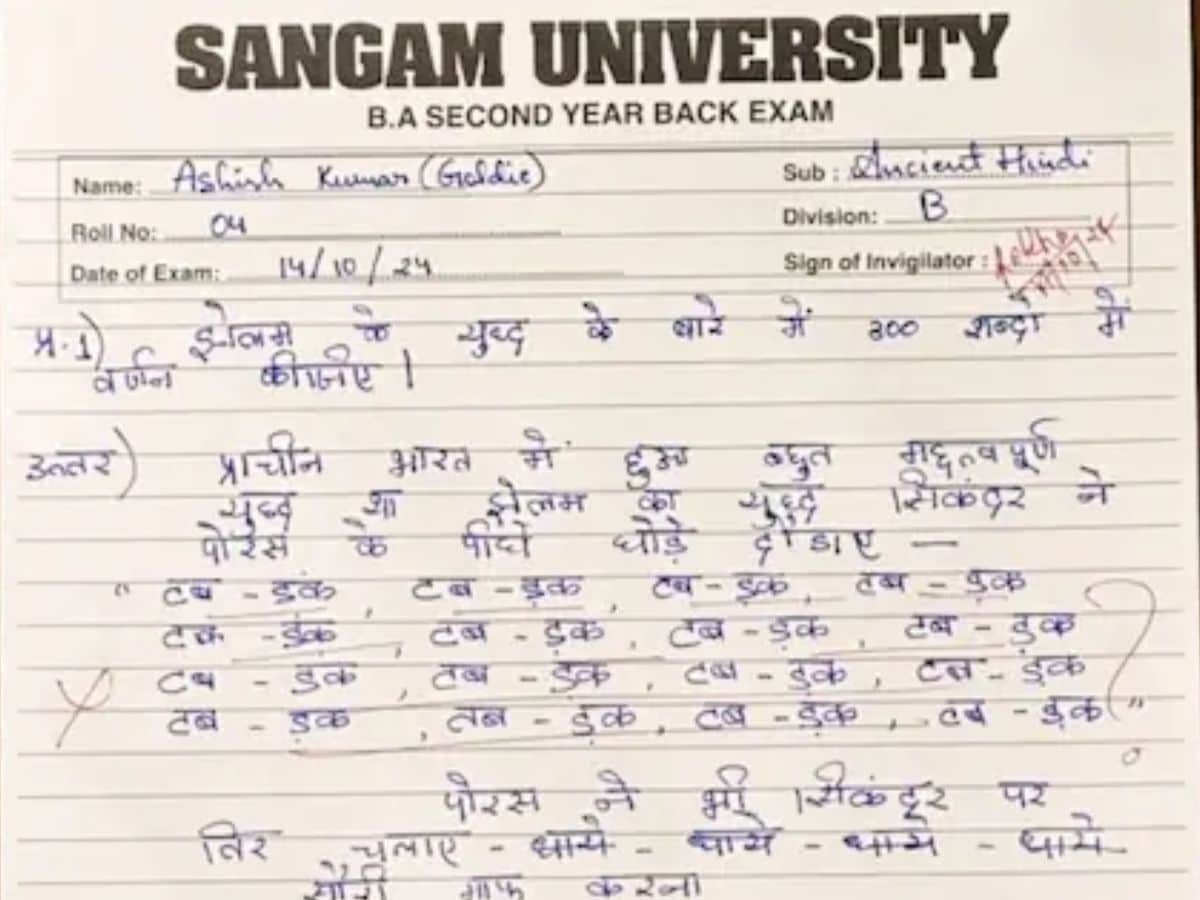 SANGAM UNIVERSITY
B.A SECOND YEAR BACK EXAM
Name: Ashish Kumar (Goldie) Sub : Ancient Hindi
Roll No: 04 Division: B
Date of Exam: 14/10/24 Sign of Invigilator :
प्र.1) झेलम के युध्द के बारे में 300 शब्दो में
वर्णन कीजिए।
उत्तर) प्राचीन भारत में हुआ बहुत महत्वपूर्ण
युध्द था झेलम का युध्द सिकंदर ने
पोरस के पीछे घोड़े दौडाए —
" टब - डक, टब - ड़क, टब - ड़क, टब - ड़क
टब - ड़क, टब - ड़क, टब - ड़क, टब - ड़क
टब - ड़क, टब - ड़क, टब - ड़क, टब - ड़क
टब - ड़क, तब - ड़क, टब - ड़क, टब - ड़क "
?
पोरस ने भी सिकंदर पर
तिर चलाए - धाये - धाये - धाये - धाये
सॉरी माफ करना